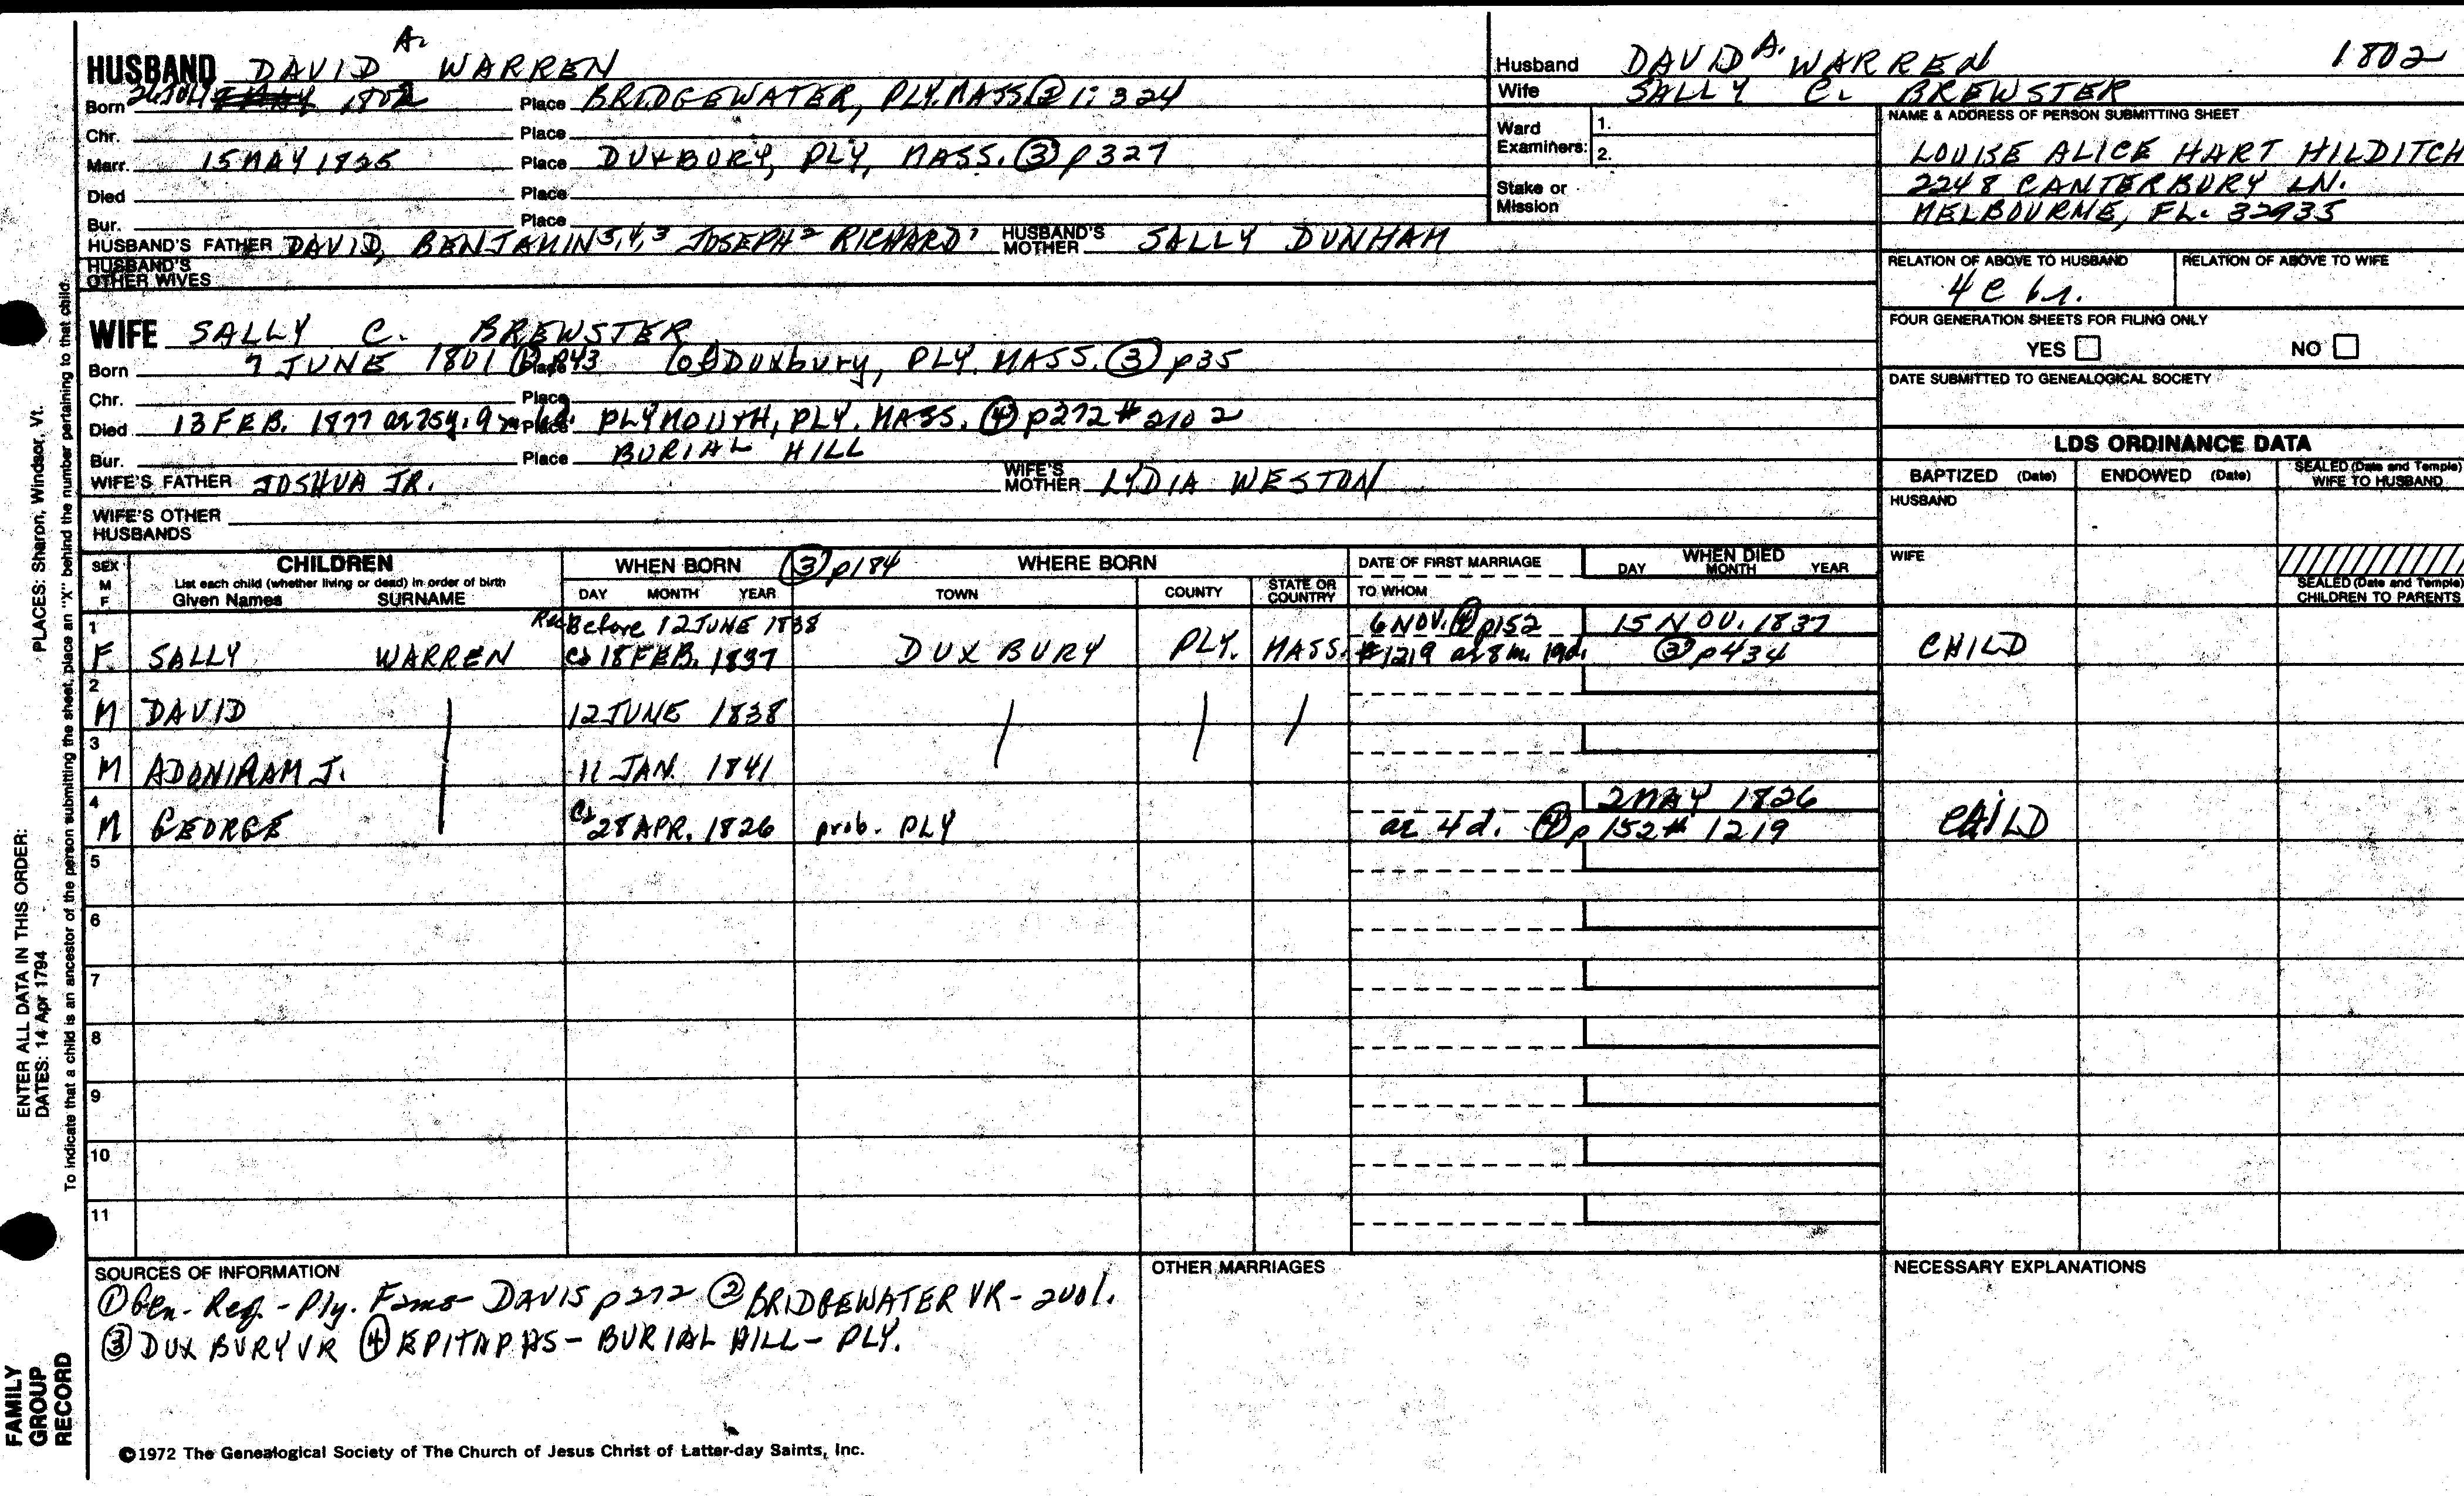 HUSBAND DAVID A. WARREN
Born 1802 Place BRIDGEWATER, PLY. MASS. ② 1:324
Chr. Place
Marr. 15 MAY 1825 Place DUXBURY, PLY, MASS. ③ p327
Died Place
Bur. Place
HUSBAND'S FATHER DAVID, BENJAMIN 5,4,3 JOSEPH 2 RICHARD 1 HUSBAND'S MOTHER SALLY DUNHAM
HUSBAND'S OTHER WIVES
Husband DAVID A. WARREN 1802
Wife SALLY C. BREWSTER
Ward Examiners: 1.
2.
Stake or Mission
NAME & ADDRESS OF PERSON SUBMITTING SHEET
LOUISE ALICE HART HILDITCH
2248 CANTERBURY LN.
MELBOURNE, FL. 32935
RELATION OF ABOVE TO HUSBAND RELATION OF ABOVE TO WIFE
4 C 6 r.
FOUR GENERATION SHEETS FOR FILING ONLY
YES NO
DATE SUBMITTED TO GENEALOGICAL SOCIETY
WIFE SALLY C. BREWSTER
Born 7 JUNE 1801 p43 Place (of) Duxbury, PLY. MASS. ③ p35
Chr. Place
Died 13 FEB. 1877 ae 75y. 9m Place PLYMOUTH, PLY. MASS. ④ p272 # 2102
Bur. Place BURIAL HILL
WIFE'S FATHER JOSHUA JR. WIFE'S MOTHER LYDIA WESTON
WIFE'S OTHER HUSBANDS
LDS ORDINANCE DATA
BAPTIZED (Date) ENDOWED (Date) SEALED (Date and Temple) WIFE TO HUSBAND
HUSBAND
WIFE
SEALED (Date and Temple) CHILDREN TO PARENTS
SEX M F CHILDREN List each child (whether living or dead) in order of birth Given Names SURNAME
WHEN BORN ③ p184 DAY MONTH YEAR
WHERE BORN TOWN COUNTY STATE OR COUNTRY
DATE OF FIRST MARRIAGE TO WHOM
WHEN DIED DAY MONTH YEAR
1 Rec Before 12 JUNE 1838 6 NOV. ④ p152 15 NOV. 1837
F SALLY WARREN ca 18 FEB. 1837 DUXBURY PLY. MASS. #1219 ae 8m. 19d. ③ p434 CHILD
2
M DAVID 12 JUNE 1838
3
M ADONIRAM J. 11 JAN. 1841
4 2 MAY 1826
M GEORGE ca 28 APR. 1826 prob. PLY ae 4d. ④ p152 # 1219 CHILD
5
6
7
8
9
10
11
SOURCES OF INFORMATION
① Gen. Reg. - Ply. Fams - DAVIS p272 ② BRIDGEWATER VR - 2 vol.
③ DUXBURY VR ④ EPITAPHS - BURIAL HILL - PLY.
OTHER MARRIAGES
NECESSARY EXPLANATIONS
©1972 The Genealogical Society of The Church of Jesus Christ of Latter-day Saints, Inc.
FAMILY GROUP RECORD
ENTER ALL DATA IN THIS ORDER:
DATES: 14 Apr 1794 PLACES: Sharon, Windsor, Vt.
To indicate that a child is an ancestor of the person submitting the sheet, place an "X" behind the number pertaining to that child.